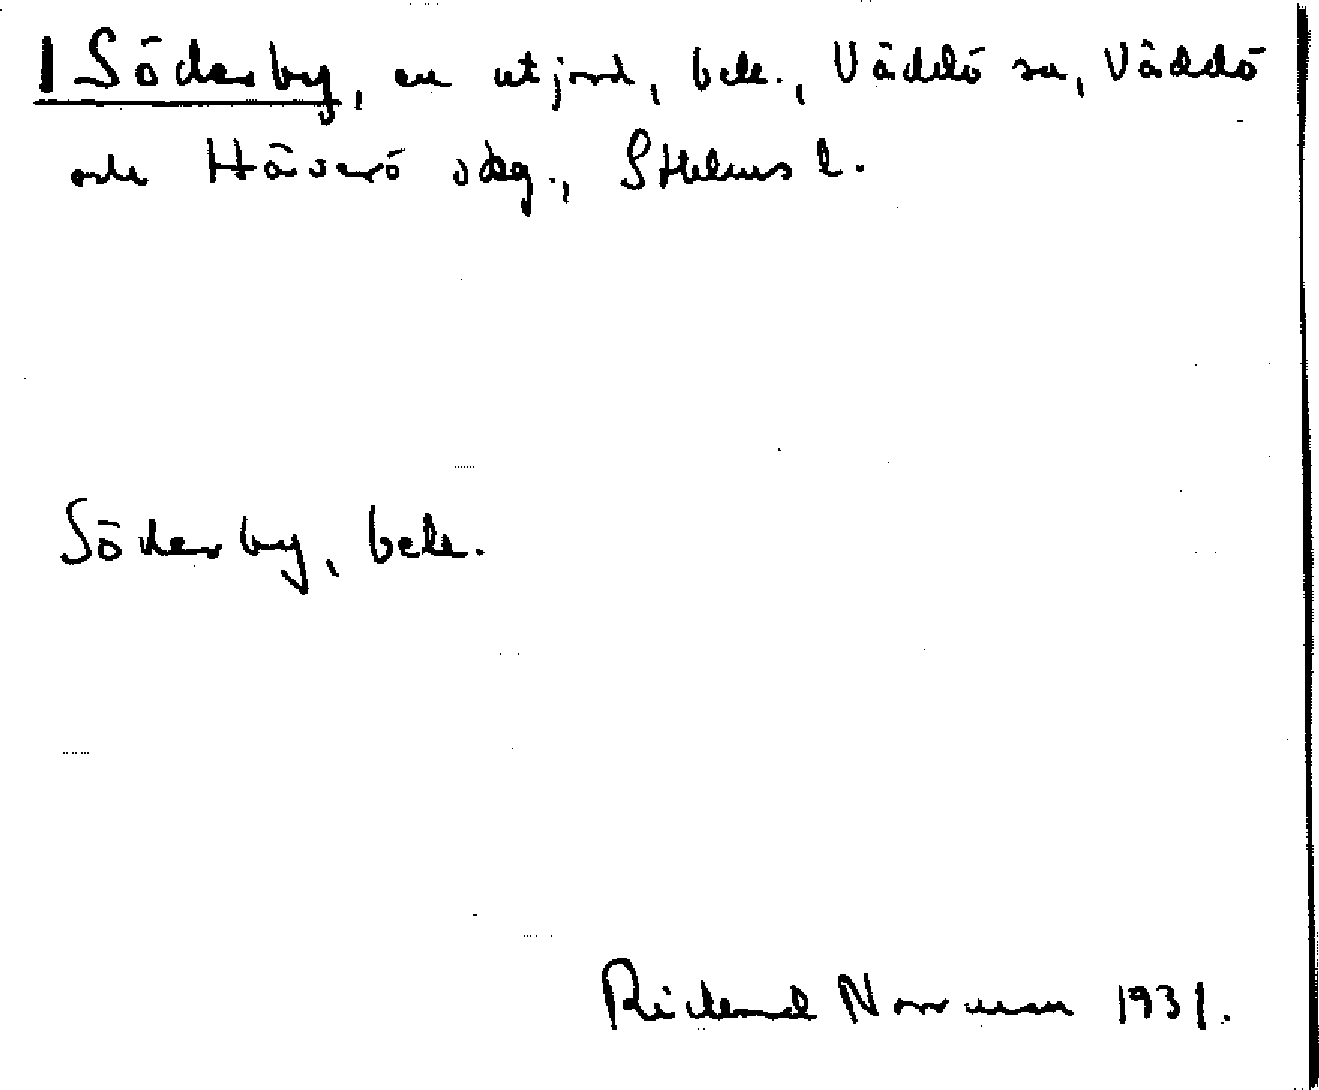 1 Söderby, en utjord, bebt., Väddö sn, Väddö
och Häverö sklg., Sthlms l.
Söderby, bebt.
Rickard Norrman 1931.